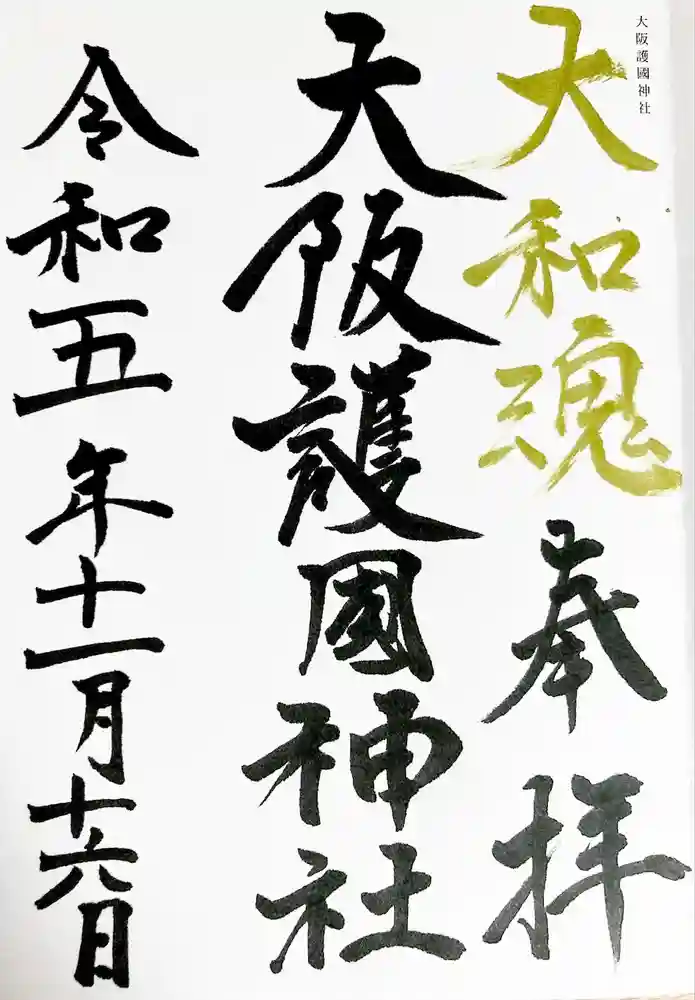 大阪護國神社
大和魂
奉拝
大阪護國神社
令和五年十一月十六日